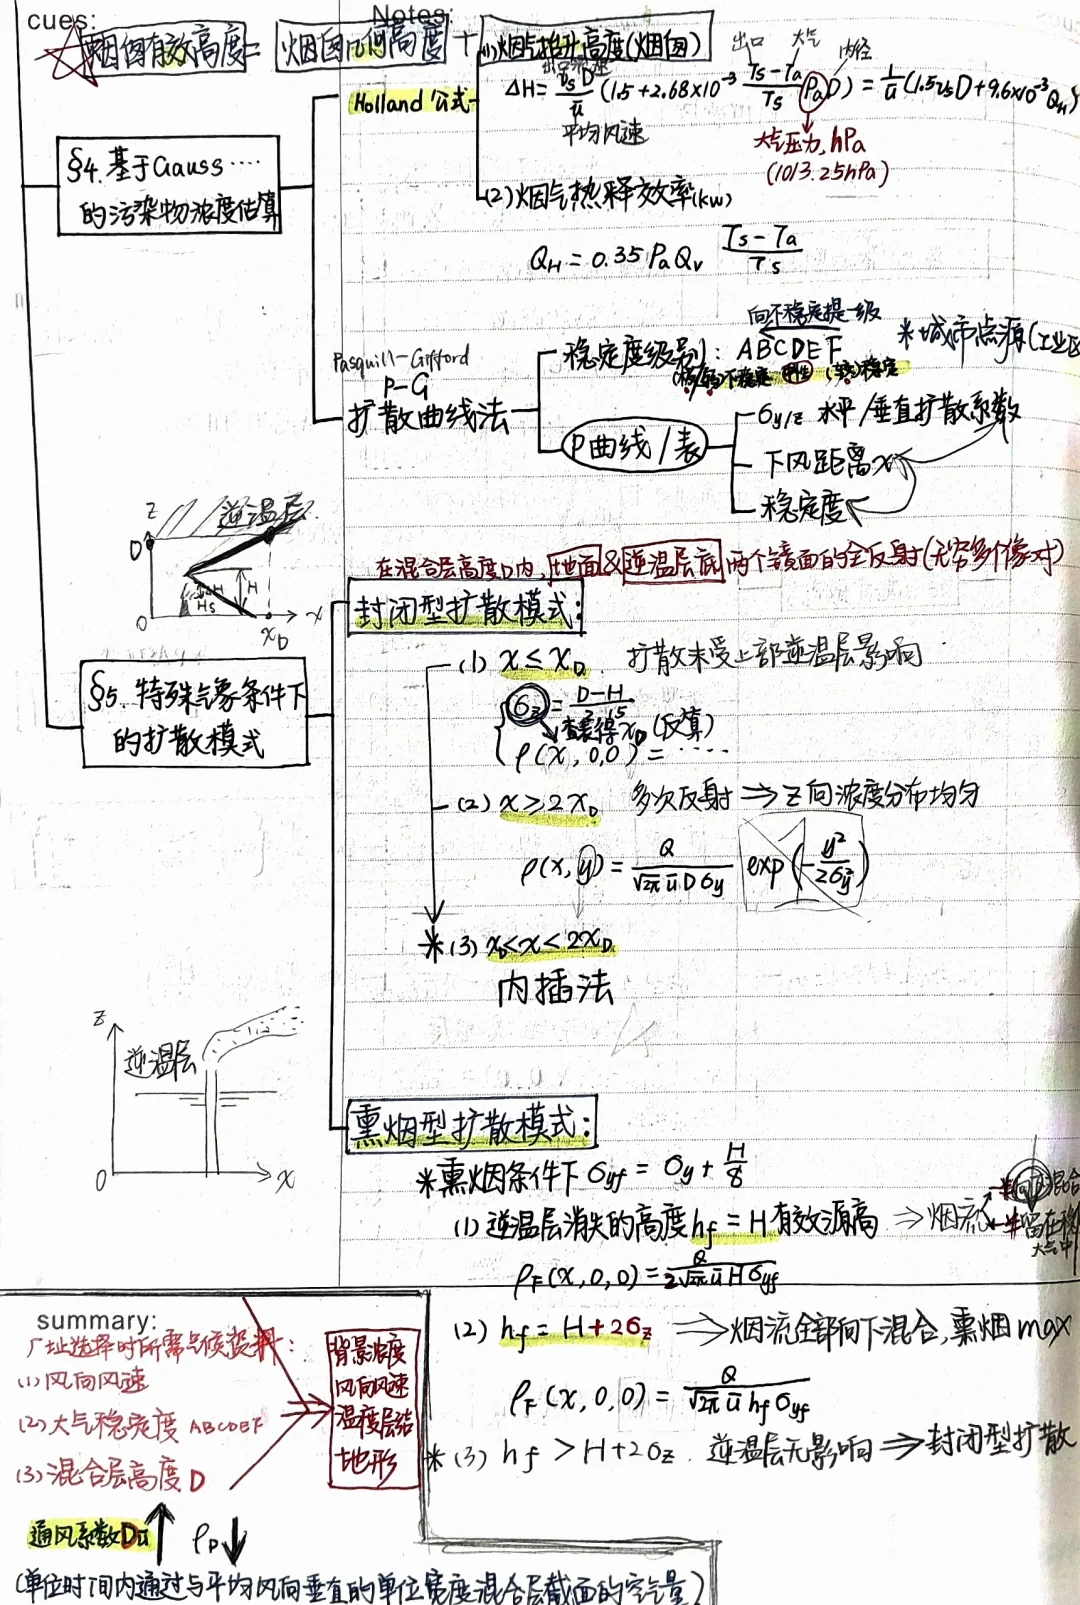 cues:
Notes:
☆烟囱有效高度 = 烟囱几何高度 + (1)烟气抬升高度(烟囱)
出口流速
出口 大气 内径
Holland 公式
ΔH = VsD/ū (1.5+2.68×10⁻³ (Ts-Ta)/Ts PaD) = 1/ū (1.5VsD+9.6×10⁻³QH)
平均风速
大气压力, hPa
(1013.25hPa)
§4. 基于Gauss····
的污染物浓度估算
(2)烟气热释效率(kw)
QH = 0.35 Pa Qv (Ts-Ta)/Ts
向不稳定提一级
Pasquill-Gifford
P-G
扩散曲线法
稳定度级别: ABCDEF
*城市点源(工业区
不稳定 中性 (较)稳定
P曲线/表
σy/z 水平/垂直扩散系数
下风距离x
稳定度
z 逆温层
D
H
Hs
O xD x
在混合层高度D内, 地面&逆温层底 两个镜面的全反射(无穷多个像对)
封闭型扩散模式:
§5. 特殊气象条件下
的扩散模式
(1) x ≤ xD. 扩散未受上部逆温层影响
σz = (D-H)/2.15
查表得xD(反算)
ρ(x,0,0) = ·····
(2) x ≥ 2xD 多次反射 ⇒ z向浓度分布均匀
ρ(x,y) = Q/(√2π ū D σy) exp(-y²/2σy²)
*(3) xD<x<2xD
内插法
z
逆温层
O x
熏烟型扩散模式:
*熏烟条件下 σyf = σy + H/8
(1) 逆温层消失的高度 hf = H 有效源高 ⇒ 烟流
半向下混合
半留在稳
大气中
ρF(x,0,0) = Q/(2√2π ū H σyf)
(2) hf = H+2σz ⇒ 烟流全部向下混合, 熏烟max
ρF(x,0,0) = Q/(√2π ū hf σyf)
*(3) hf > H+2σz. 逆温层无影响 ⇒ 封闭型扩散
summary:
厂址选择时所需气候资料:
(1)风向风速
(2)大气稳定度 ABCDEF
(3)混合层高度D
背景浓度
风向风速
温度层结
地形
通风系数Dū↑ ρD↓
(单位时间内通过与平均风向垂直的单位宽度混合层截面的空气量)